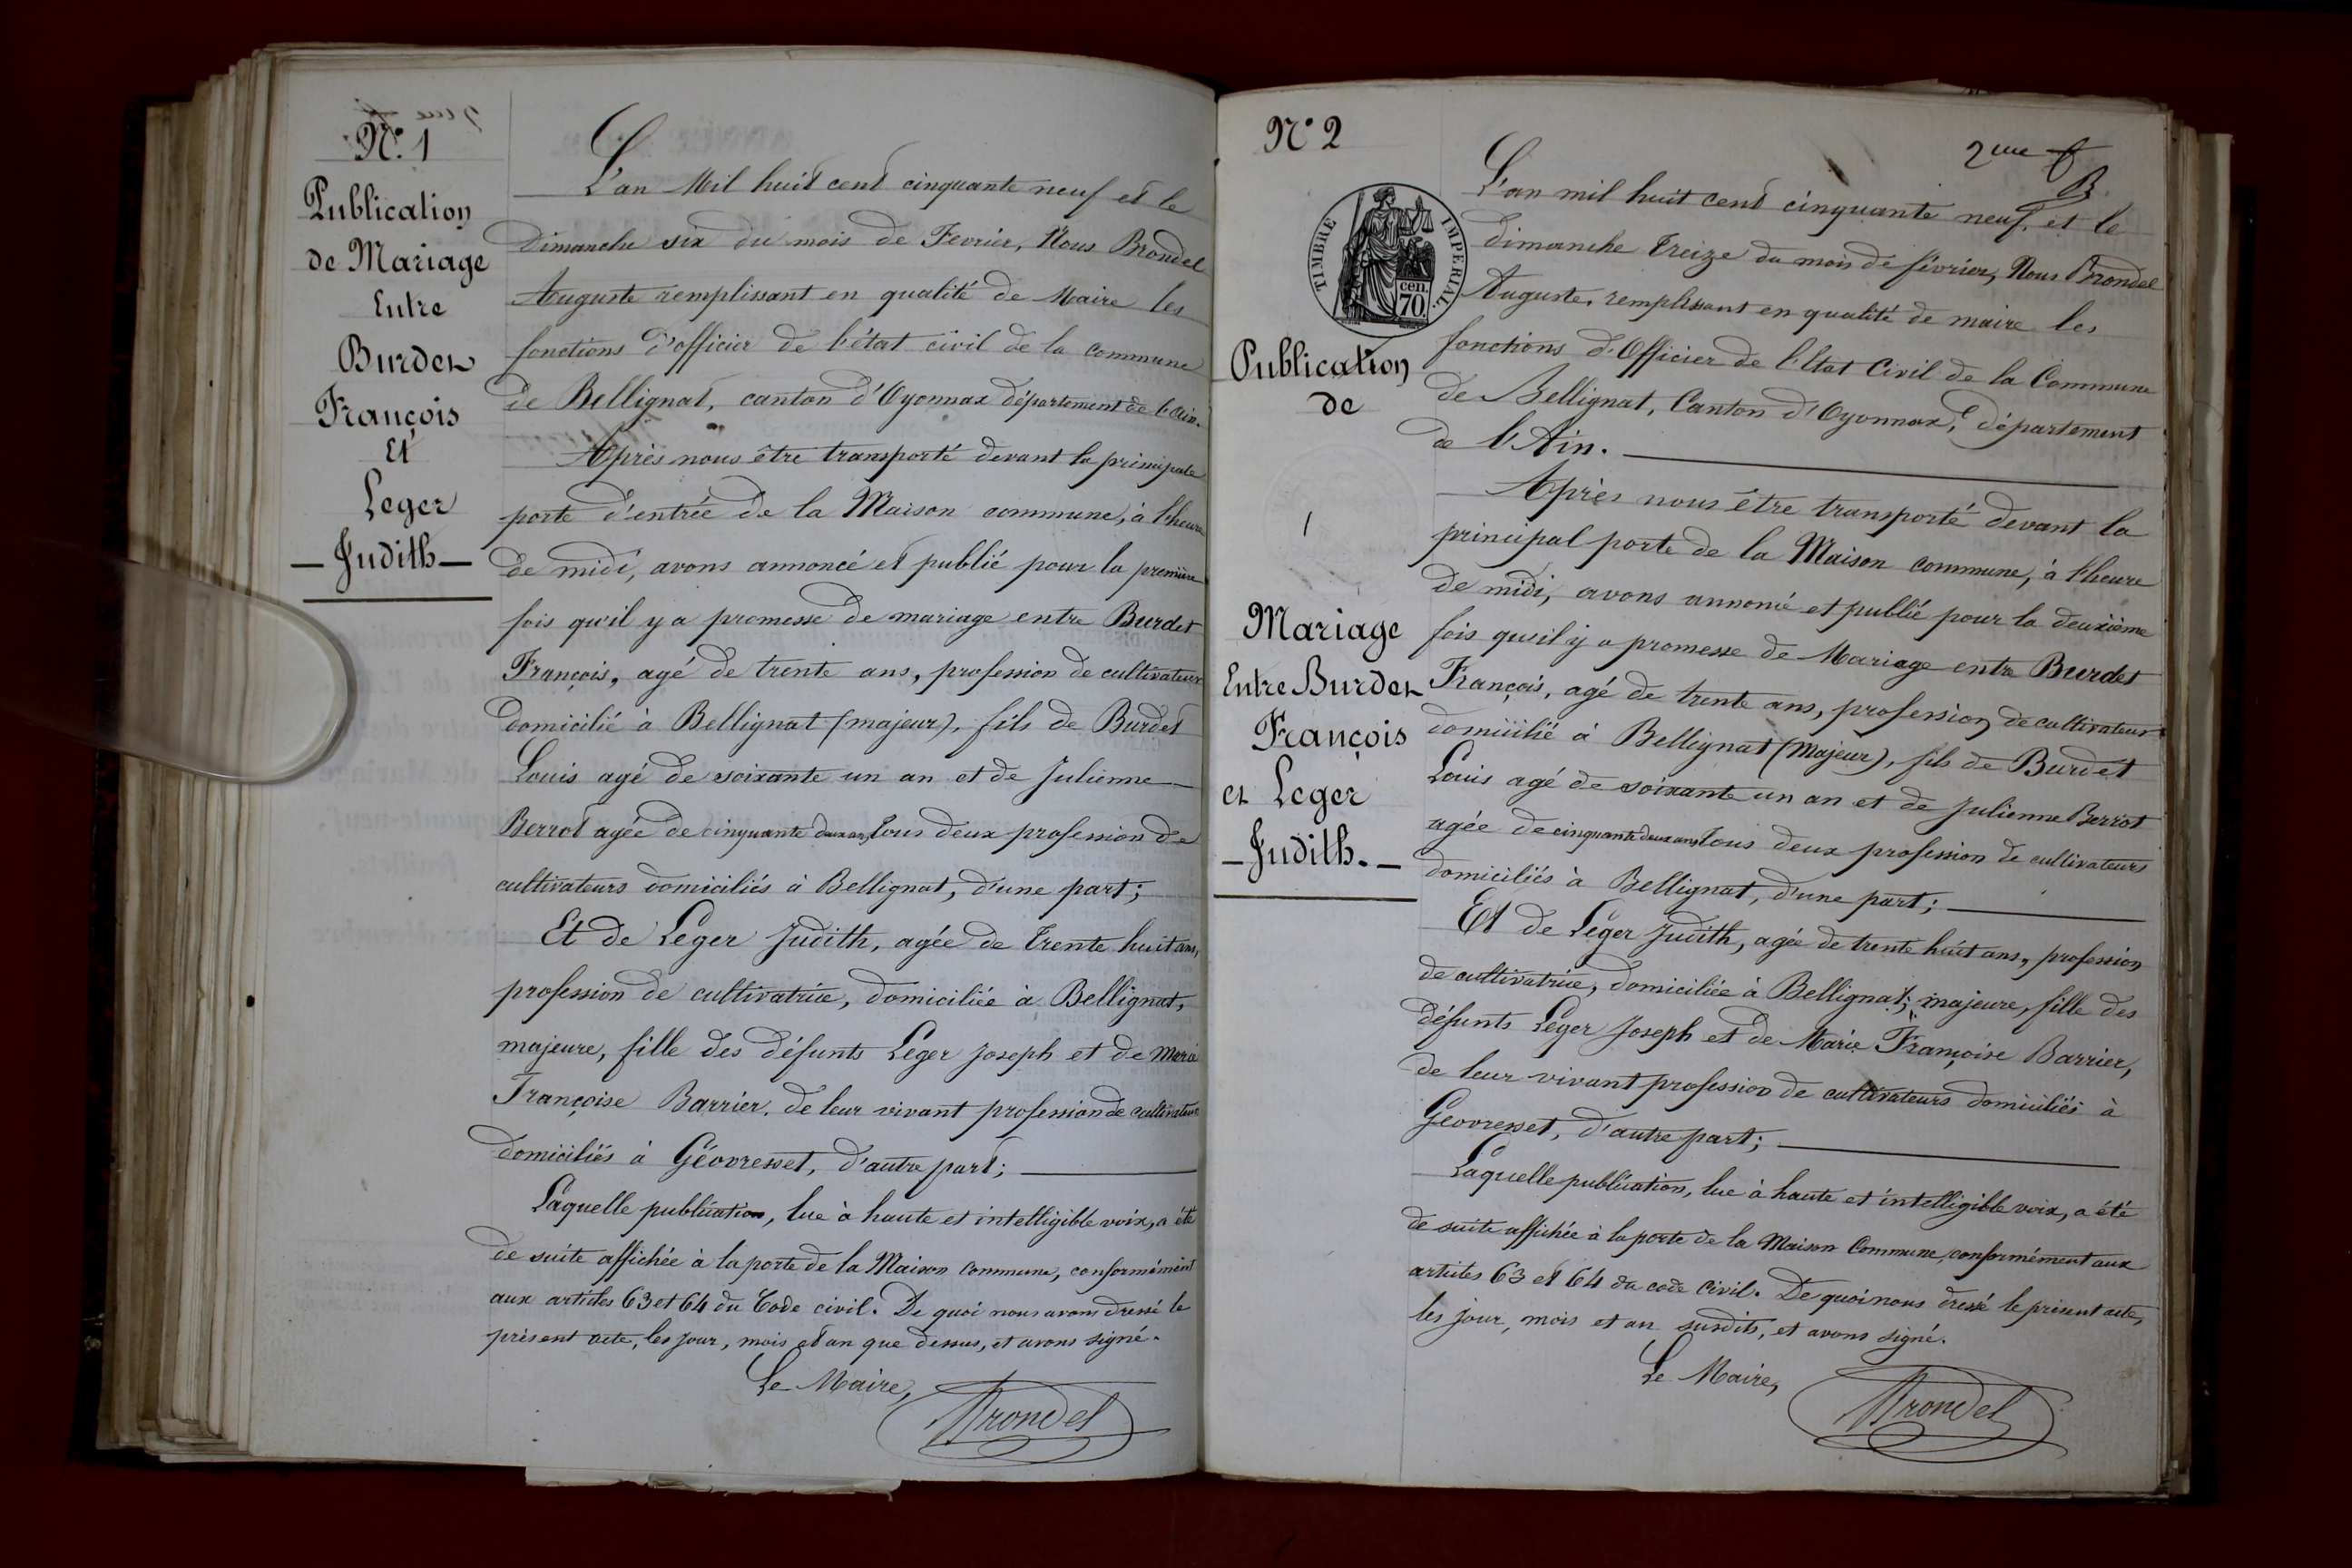 N° 1
Publication
de Mariage
Entre
Burdet
François
Et
Leger
Judith
L'an Mil huit cent cinquante neuf et le
Dimanche six du mois de Fevrier, Nous Brondel
Auguste remplissant en qualité de Maire les
fonctions d'officier de l'état civil de la commune
de Bellignat, canton d'Oyonnax département de l'Ain.
Après nous être transporté devant la principale
porte d'entrée de la Maison commune, à l'heure
de midi, avons annoncé et publié pour la première
fois qu'il y a promesse de mariage entre Burdet
François, agé de trente ans, profession de cultivateur
domicilié à Bellignat (majeur), fils de Burdet
Louis agé de soixante un an et de Julienne
Berrot agée de cinquante deux ans, tous deux profession de
cultivateurs domiciliés à Bellignat, d'une part;
Et de Léger Judith, agée de trente huit ans,
profession de cultivatrice, domiciliée à Bellignat,
majeure, fille des défunts Léger Joseph et de Marie
Françoise Barrier, de leur vivant profession de cultivateurs
domiciliés à Géovresset, d'autre part;
Laquelle publication, lue à haute et intelligible voix, a été
de suite affichée à la porte de la Maison commune, conformément
aux articles 63 et 64 du Code civil. De quoi nous avons dressé le
présent acte, les jour, mois et an que dessus, et avons signé.
Le Maire,
Brondel
N° 2
2me f
B
TIMBRE IMPERIAL.
cen.
70.
Publication
de
Mariage
Entre Burdet
François
et Leger
Judith.
L'an mil huit cent cinquante neuf, et le
dimanche treize du mois de février, Nous Brondel
Auguste, remplissant en qualité de maire les
fonctions d'Officier de l'Etat Civil de la Commune
de Bellignat, Canton d'Oyonnax, département
de l'Ain.
Après nous être transporté devant la
principal porte de la Maison commune, à l'heure
de midi, avons annoncé et publié pour la deuxième
fois qu'il y a promesse de Mariage entre Burdet
François, agé de trente ans, profession de cultivateur
domicilié à Bellignat (Majeur), fils de Burdet
Louis agé de soixante un an et de Julienne Berrot
agée de cinquante deux ans tous deux profession de cultivateurs
domiciliés à Bellignat, d'une part;
Et de Léger Judith, agée de trente huit ans, profession
de cultivatrice, domiciliée à Bellignat; majeure, fille des
défunts Léger Joseph et de Marie Françoise Barrier,
de leur vivant profession de cultivateurs domiciliés à
Géovresset, d'autre part;
Laquelle publication, lue à haute et intelligible voix, a été
de suite affichée à la porte de la Maison Commune, conformément aux
articles 63 et 64 du code civil. De quoi nous dressé le présent acte,
les jour, mois et an susdits, et avons signé.
Le Maire,
Brondel